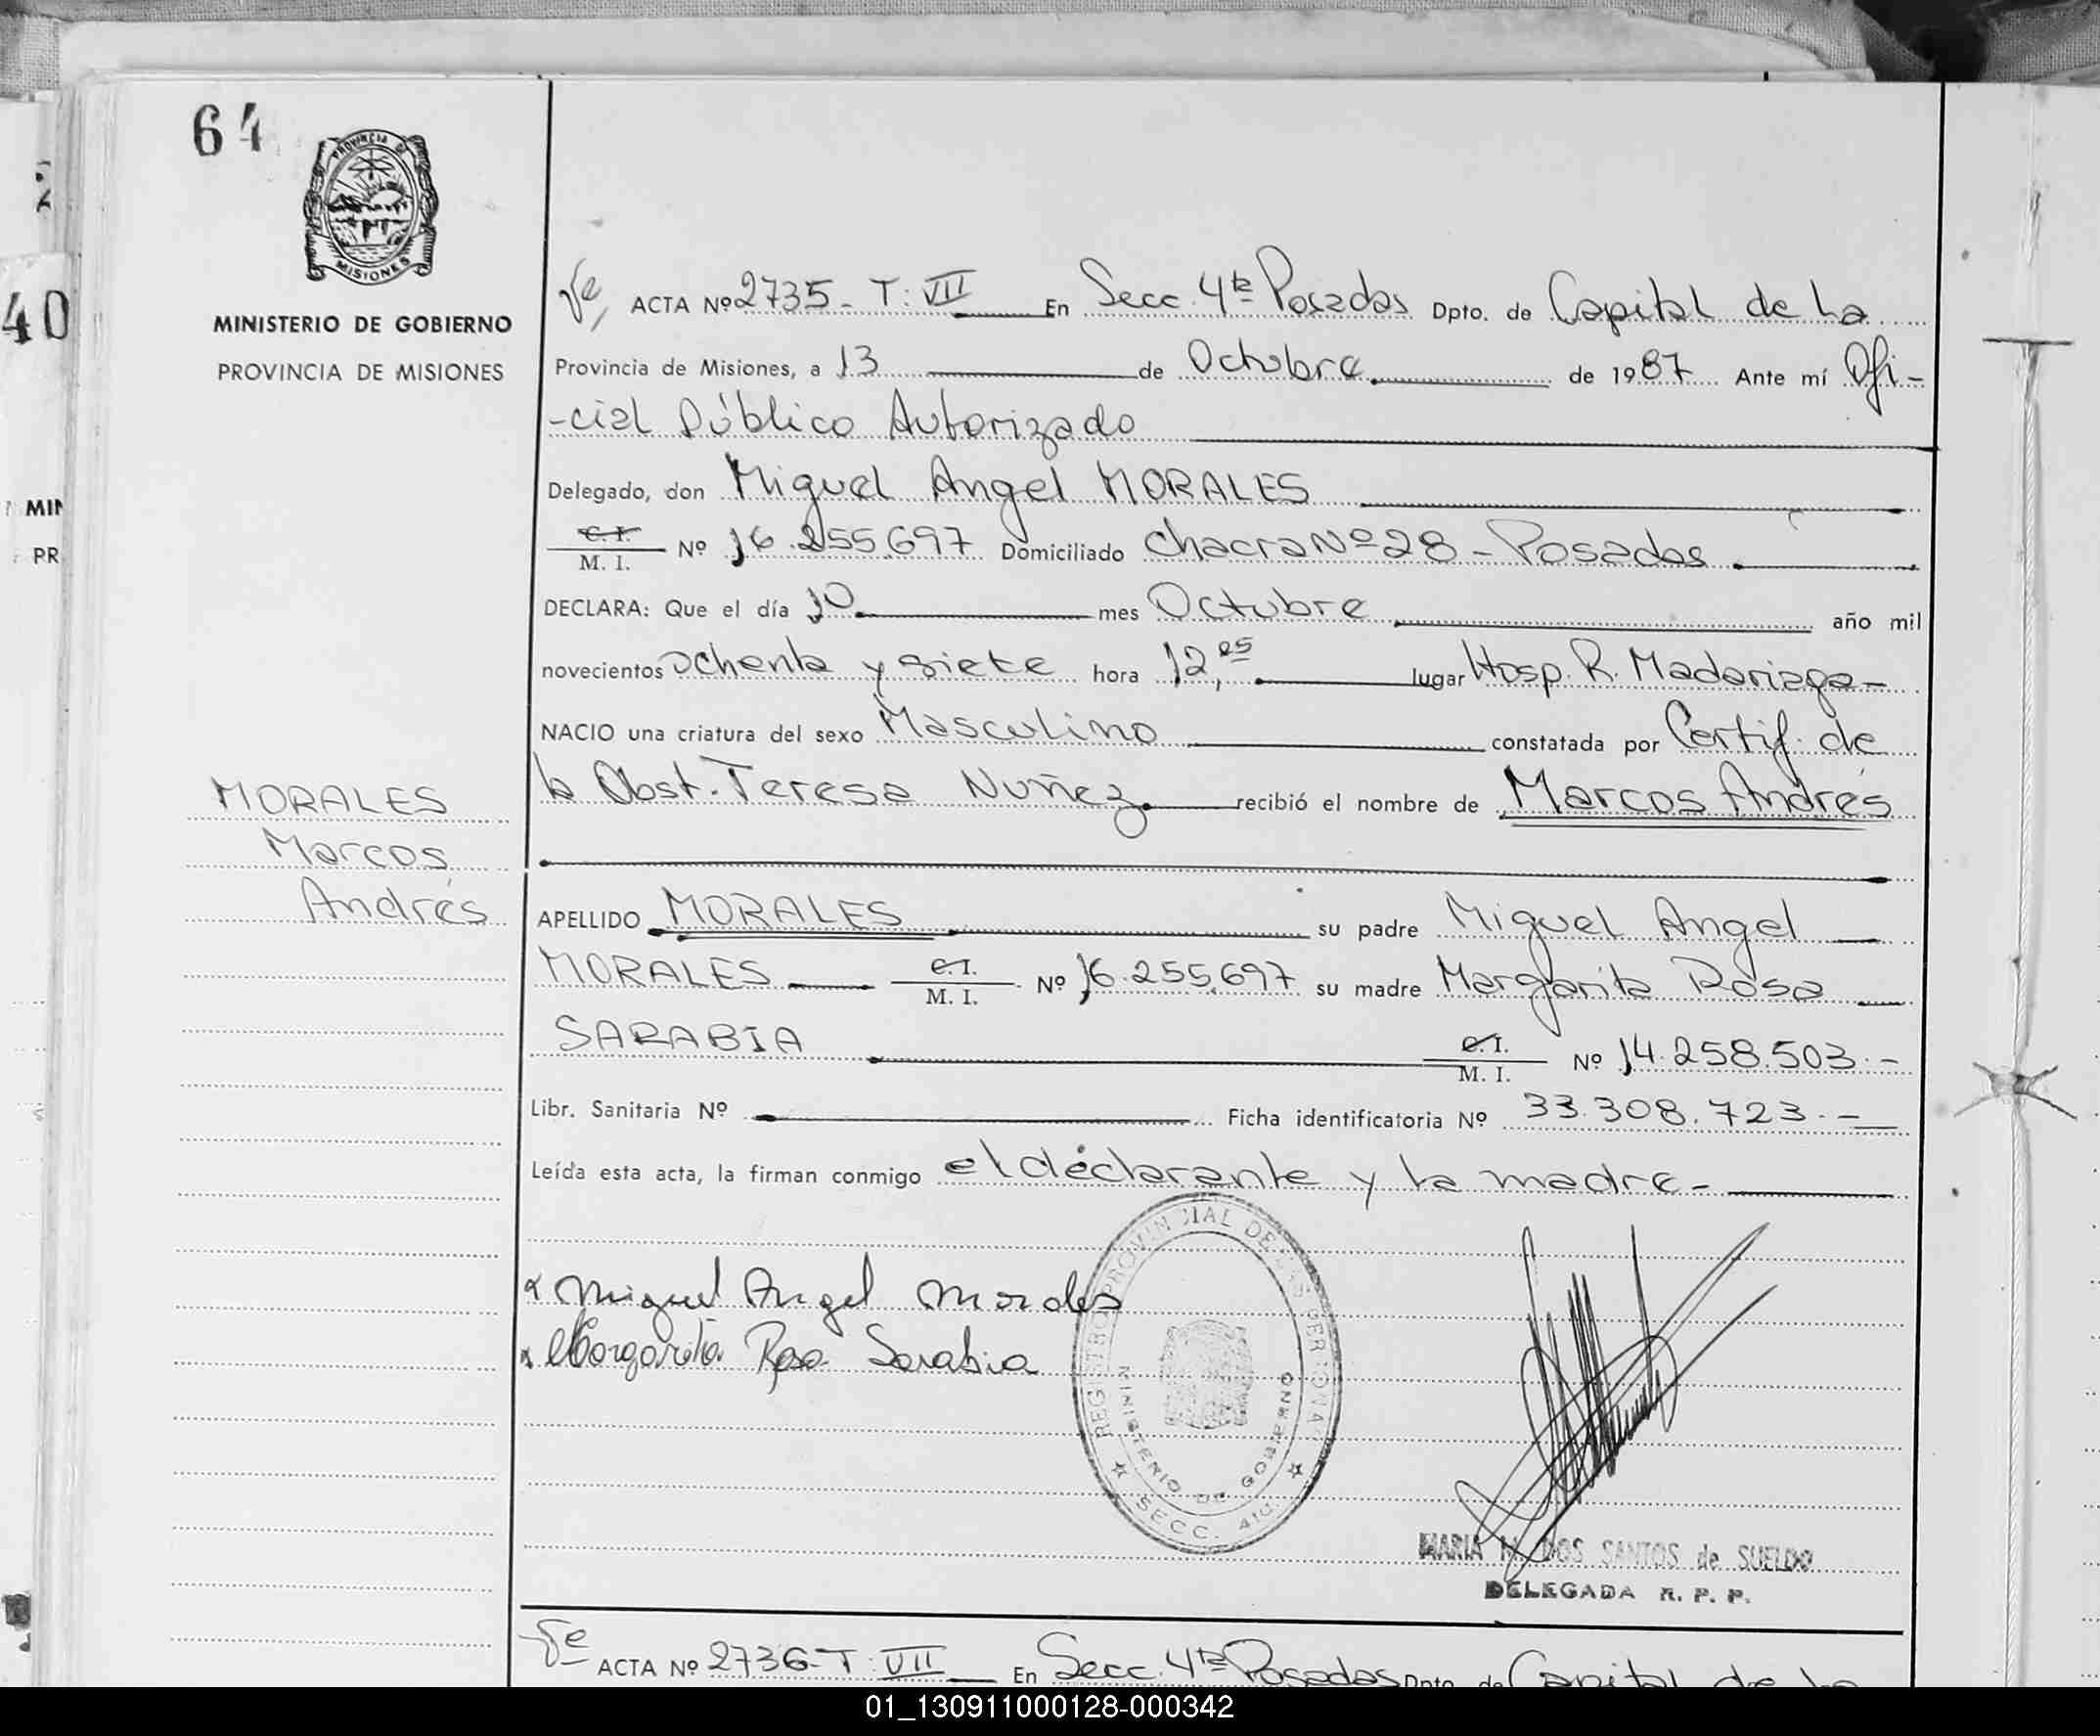 64
PROVINCIA DE
MISIONES
MINISTERIO DE GOBIERNO
PROVINCIA DE MISIONES
40
MIN
PR
ACTA Nº 2735- T: VII En Secc. 4ta Posadas Dpto. de Capital de la
Provincia de Misiones, a 13 de Octubre de 1987 Ante mí Ofi-
-cial Público Autorizado
Delegado, don Miguel Angel MORALES
C. I.
M. I. Nº 16.255.697 Domiciliado Chacra Nº 28 - Posadas
DECLARA: Que el día 10 mes Octubre año mil
novecientos ochenta y siete hora 12,05 lugar Hosp. R. Madariaga-
NACIO una criatura del sexo Masculino constatada por Certif. de
la Obst. Teresa Nuñez recibió el nombre de Marcos Andrés
MORALES
Marcos
Andrés
APELLIDO MORALES su padre Miguel Angel
MORALES C.I. M. I. Nº 16.255.697 su madre Margarita Rosa
SARABIA C.I. M. I. Nº 14.258.503.-
Libr. Sanitaria Nº Ficha identificatoria Nº 33.308.723.-
Leída esta acta, la firman conmigo el declarante y la madre-
Miguel Angel Morales
Margarita Rosa Sarabia
REGISTRO PROVINCIAL DE LAS PERSONAS
MINISTERIO DE GOBIERNO
SECC. 4ta.
MARIA M. DOS SANTOS de SUELDO
DELEGADA R. P. P.
ACTA Nº 2736-T: VII En Secc. 4ta Posadas Dpto. de Capital de la
01_130911000128-000342